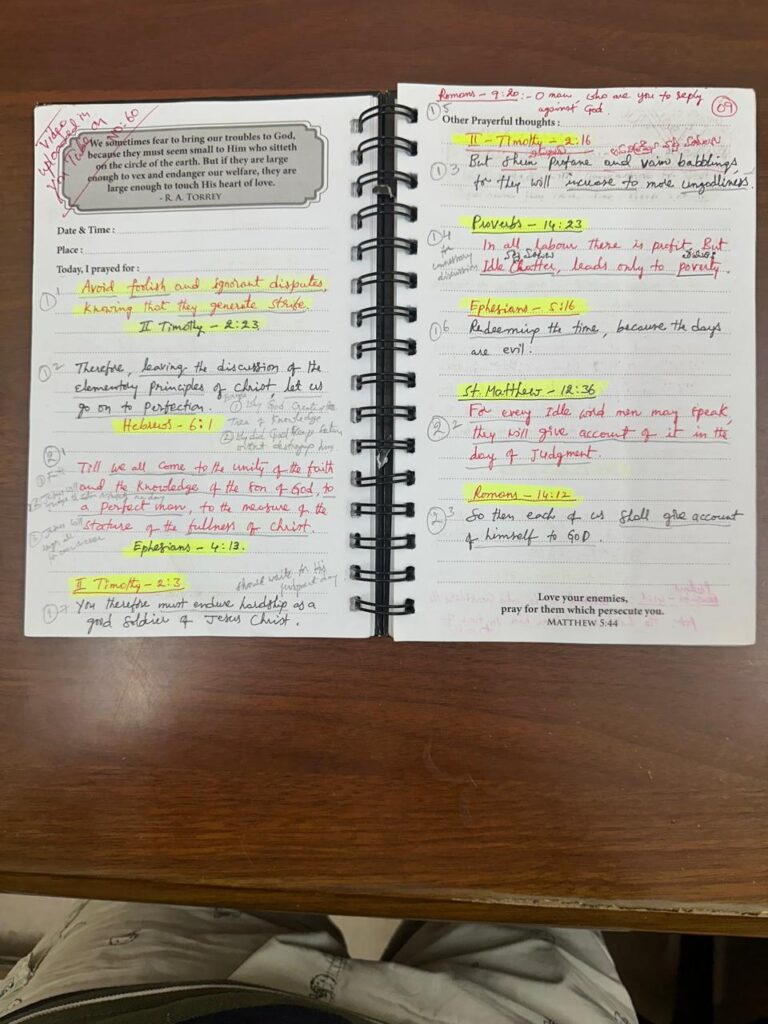 Video
uploaded in
You Tube on
NO:60
We sometimes fear to bring our troubles to God,
because they must seem small to Him who sitteth
on the circle of the earth. But if they are large
enough to vex and endanger our welfare, they are
large enough to touch His heart of love.
- R. A. TORREY
Date & Time :
Place :
Today, I prayed for :
① 1 Avoid foolish and ignorant disputes,
knowing that they generate strife.
II Timothy - 2:23
① 2 Therefore, leaving the discussion of the
elementary principles of Christ, let us
go on to perfection.
① Why God Created the
Tree of Knowledge
Hebrews - 6:1
② Why did God
② 1 Till we all come to the unity of the faith
and the knowledge of the Son of God, to
a perfect man, to the measure of the
stature of the fullness of Christ.
Ephesians - 4:13.
II Timothy - 2:3
should wait for His
judgment day
① 7 You therefore must endure hardship as a
good soldier of Jesus Christ.
Romans - 9:20 :- O man who are you to reply
against God.
09
① 5
Other Prayerful thoughts :
II - Timothy - 2:16
① 3 But shun profane and vain babblings,
for they will increase to more ungodliness.
Proverbs - 14:23
① 4 In all labour there is profit, But
for
unnecessary
discussion
Idle Chatter, leads only to poverty.
Ephesians - 5:16
① 6 Redeeming the time, because the days
are evil.
St. Matthew - 12:36
② 2 For every Idle word men may speak,
they will give account of it in the
day of Judgment.
Romans - 14:12
② 3 So then each of us shall give account
of himself to GOD.
Love your enemies,
pray for them which persecute you.
MATTHEW 5:44